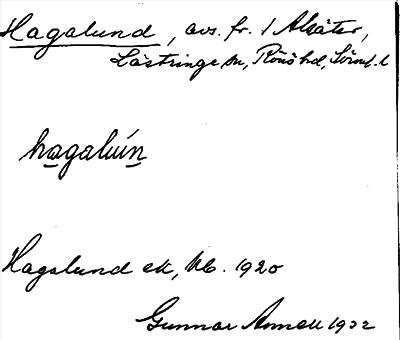 Hagalund, avs. fr. 1 Alsäter,
Lästringe sn, Rönö hd, Sörml. l
hagaluín
Hagalund ek, Kb. 1920
Gunnar Annell 1932